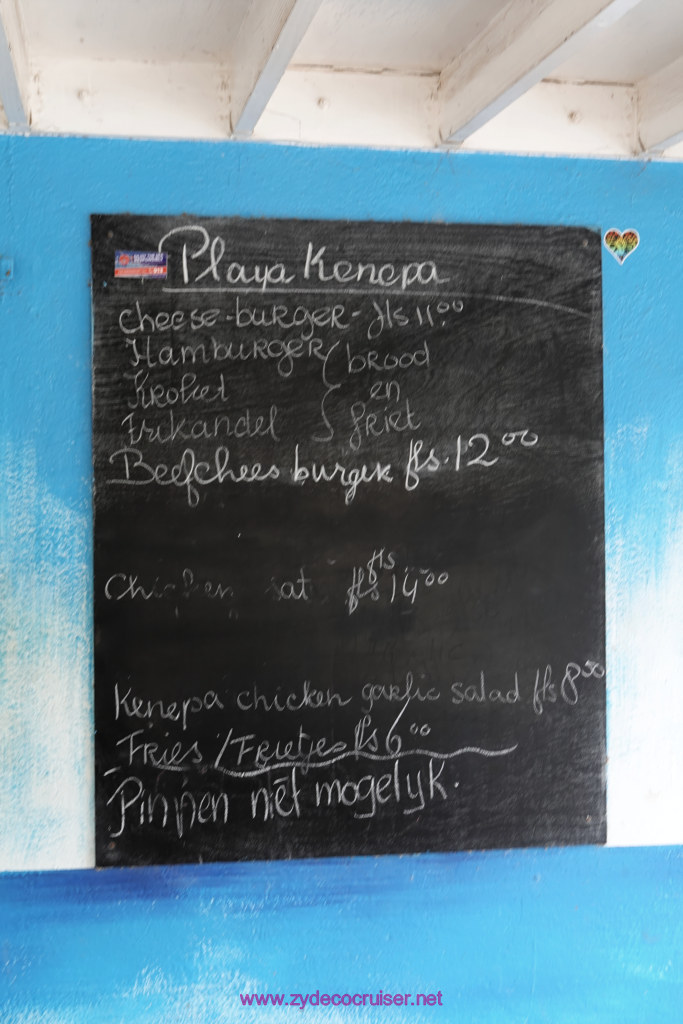 Playa Kenepa
cheese-burger - fls 11.00
Hamburger ( brood
Kroket en
Frikandel { friet
Beefchees burger fls. 12 00
fls
Chicken sat fls 14 00
Kenepa chicken garlic salad fls 8 50
Fries / Frietjes fls 6 00
Pinnen niet mogelyk.
www.zydecocruiser.net